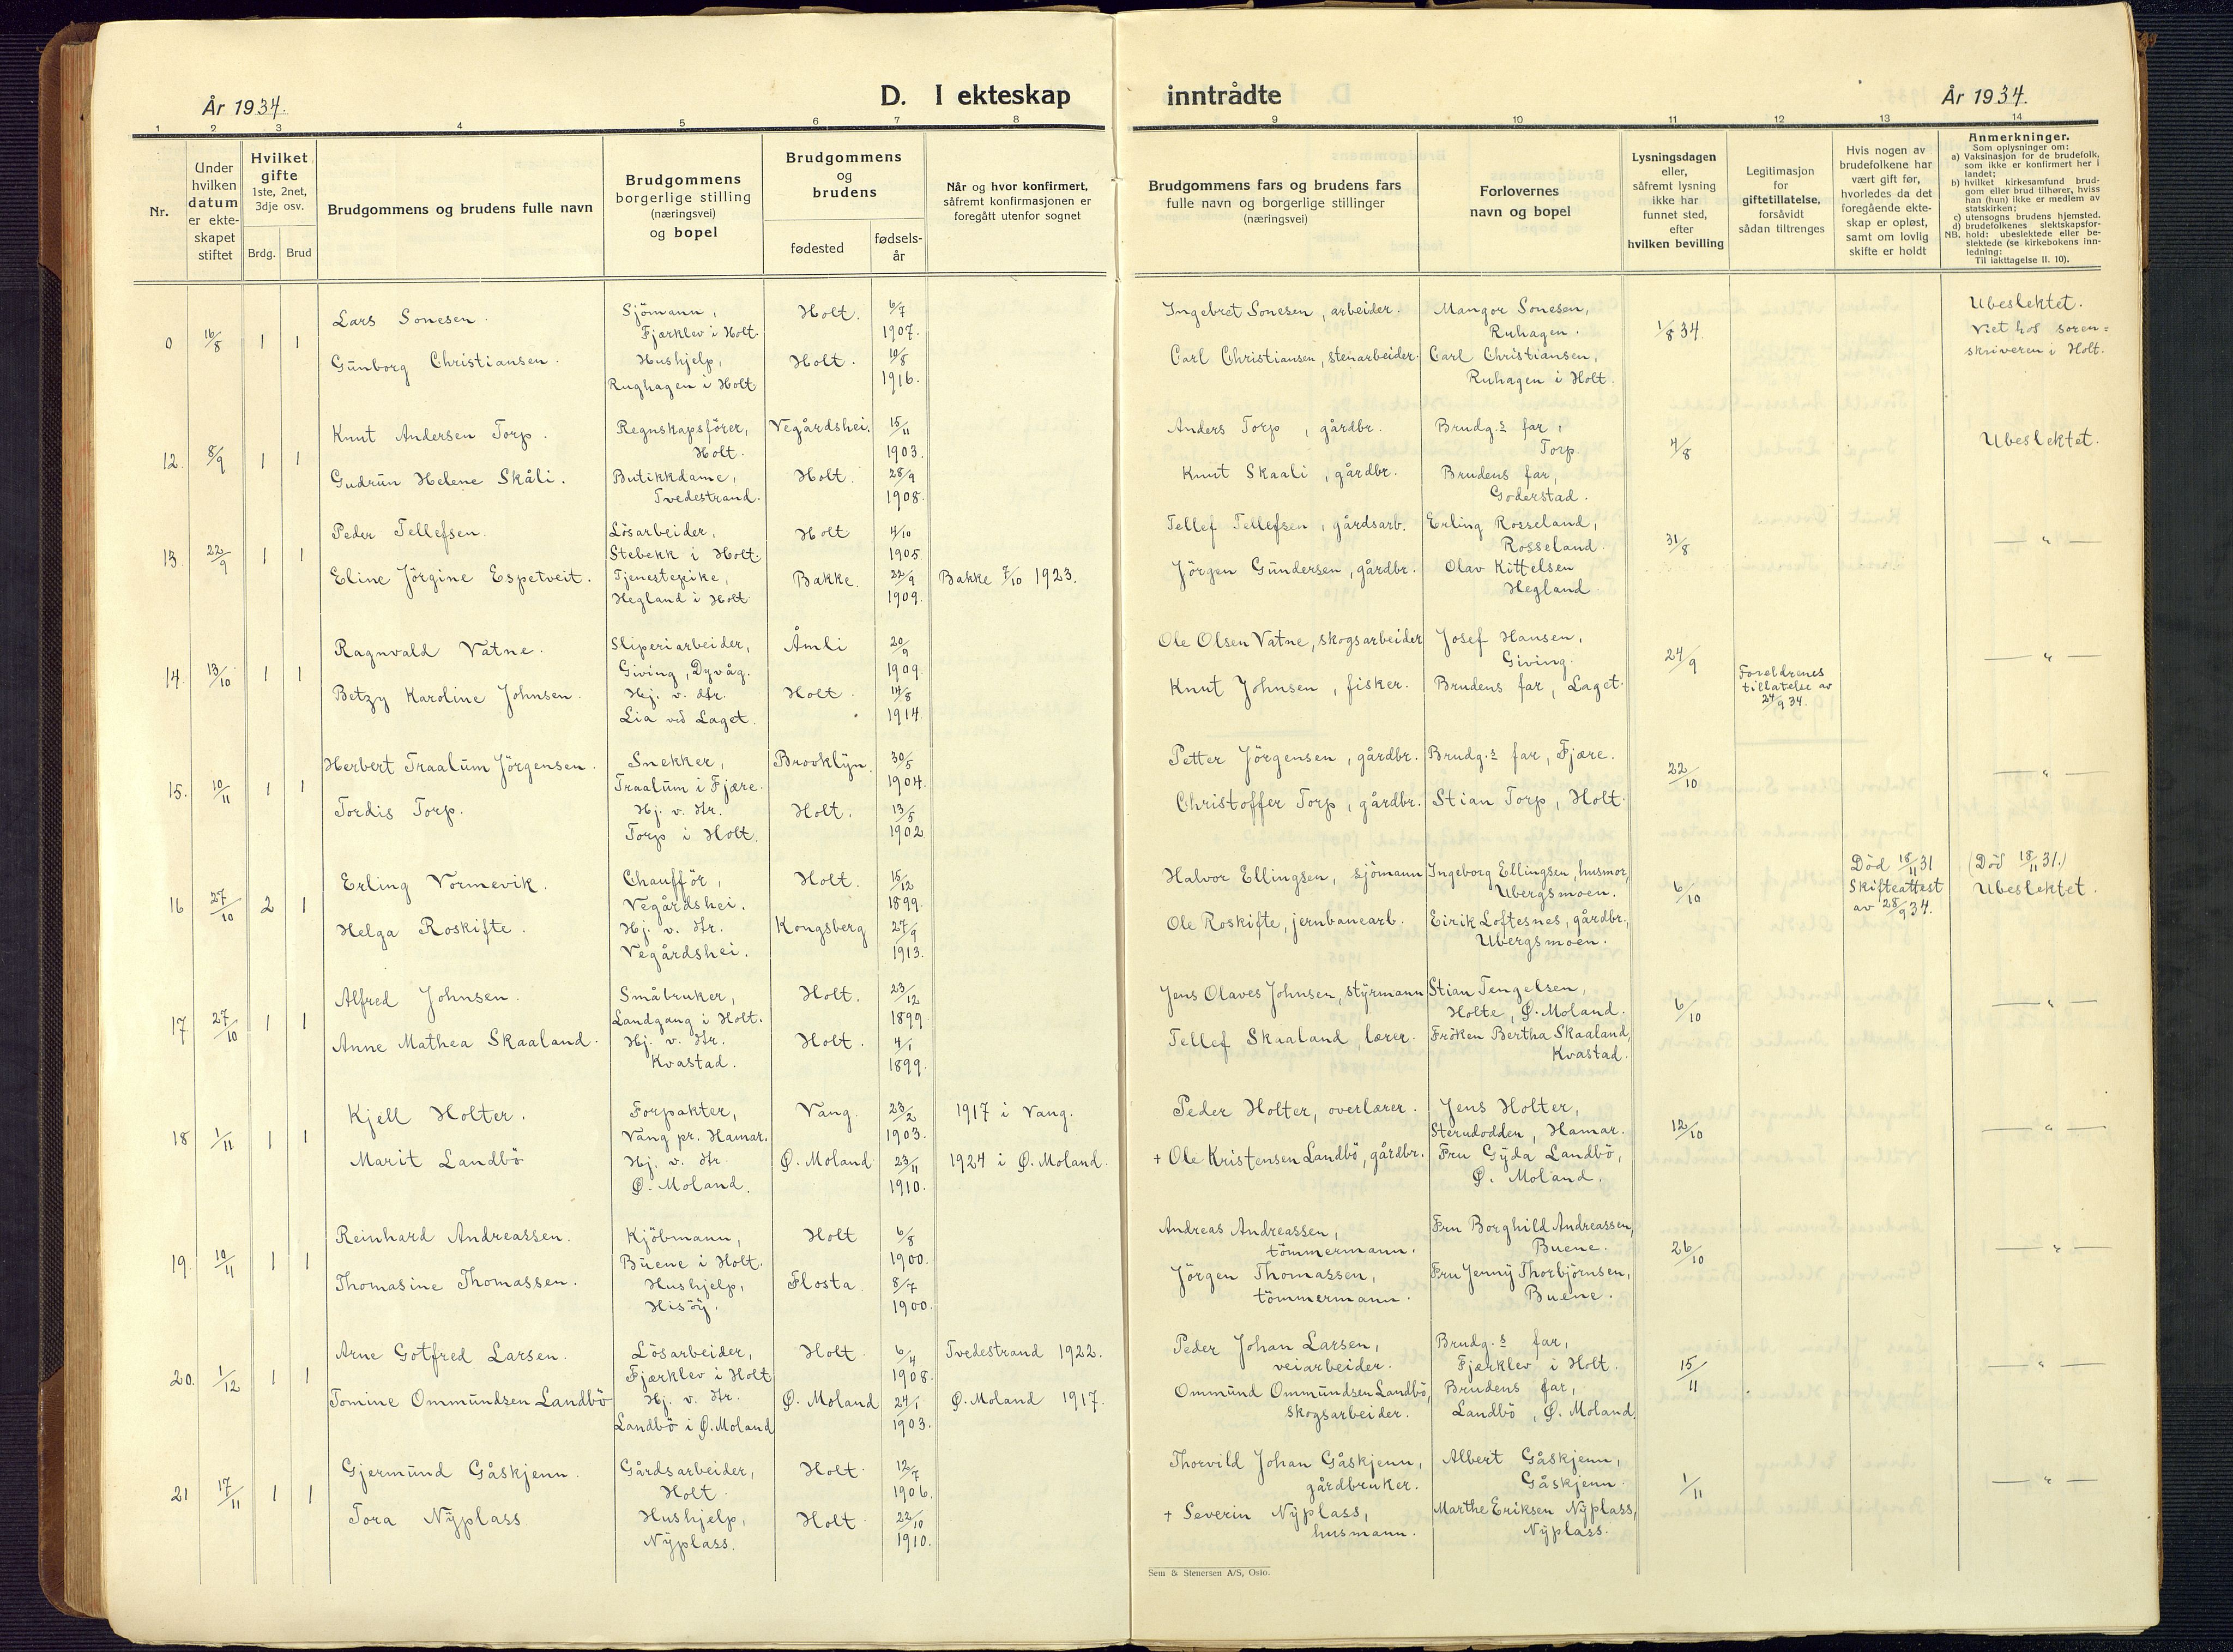 År 1934.
D. I ekteskap
inntrådte
År 1934.
1 2 3 4 5 6 7 8 9 10 11 12 13 14
Nr.
Under hvilken datum er ekteskapet stiftet
Hvilket gifte 1ste, 2net, 3dje osv.
Brdg. Brud
Brudgommens og brudens fulle navn
Brudgommens borgerlige stilling (næringsvei) og bopel
Brudgommens og brudens
fødested
fødselsår
Når og hvor konfirmert, såfremt konfirmasjonen er foregått utenfor sognet
Brudgommens fars og brudens fars fulle navn og borgerlige stillinger (næringsvei)
Forlovernes navn og bopel
Lysningsdagen eller, såfremt lysning ikke har funnet sted, efter hvilken bevilling
Legitimasjon for giftetillatelse, forsåvidt sådan tiltrenges
Hvis nogen av brudefolkene har vært gift før, hvorledes da det foregående ekteskap er opløst, samt om lovlig skifte er holdt
Anmerkninger.
Som oplysninger om:
a) Vaksinasjon for de brudefolk, som ikke er konfirmert her i landet;
b) hvilket kirkesamfund brudgom eller brud tilhører, hviss han (hun) ikke er medlem av statskirken;
c) utensogns brudens hjemsted.
d) brudefolkenes slektskapsforhold: ubeslektede eller beslektede (se kirkebokens innledning:
NB.
Til iakttagelse II. 10).
0 16/8 1 1 Lars Sonesen. Sjömann, Fjærklev i Holt. Holt. 6/7 1907. Ingebret Sonesen, arbeider. Mangor Sonesen, Ruhagen. 1/8 34. Ubeslektet. Viet hos sorenskriveren i Holt.
Gunborg Christiansen. Hushjelp, Rughagen i Holt Holt. 10/8 1916. Carl Christiansen, stenarbeider. Carl Christiansen, Ruhagen i Holt.
12. 8/9 1 1 Knut Andersen Torp. Regnskapsförer, Holt. Vegårdshei. 15/11 1903. Anders Torp, gårdbr. Brudg.s far, Torp. 4/8 Ubeslektet.
Gudrun Helene Skåli. Butikkdame, Tvedestrand. Holt. 28/9 1908. Knut Skaali, gårdbr. Brudens far, Goderstad.
13. 22/9 1 1 Peder Tellefsen. Lösarbeider, Stebekk i Holt. Holt 4/10 1905 Tellef Tellefsen, gårdsarb. Erling Rosseland, Rosseland. 31/8 — " —
Eline Jörgine Espetveit. Tjenestepike, Hegland i Holt. Bakke. 22/9 1909. Bakke 7/10 1923. Jörgen Gundersen, gårdbr. Olav Kittelsen Hegland.
14. 13/10 1 1 Ragnvald Vatne. Sliperiarbeider, Giving, Dyvåg. Åmli 20/9 1909. Ole Olsen Vatne, skogsarbeider Josef Hansen, Giving. 24/9 Foreldrenes tillatelse av 24/9 34. — " —
Betzy Karoline Johnsen. Hj. v. Htr. Lia ved Laget. Holt. 14/8 1914. Knut Johnsen, fisker. Brudens far, Laget.
15. 10/11 1 1 Herbert Traalum Jörgensen. Snekker, Traalum i Fjære. Brooklyn. 30/5 1904. Petter Jörgensen, gårdbr. Brudg.s far, Fjære. 22/10 — " —
Tordis Torp. Hj. v. Htr. Torp i Holt. Holt. 13/5 1902 Christoffer Torp, gårdbr. Stian Torp, Holt.
16 27/10 2 1 Erling Vormevik. Chaufför, Vegårdshei. Holt. 15/12 1899. Halvor Ellingsen, sjömann Ingeborg Ellingsen, husmor, Ubergsmoen. 6/10 Död 18/11 31 Skifteattest av 28/9 34. (Död 18/11 31.) Ubeslektet.
Helga Roskifte. Hj. v. Htr. Vegårdshei. Kongsberg 27/9 1913. Ole Roskifte, jernbanearb. Eirik Loftesnes, gårdbr., Ubergsmoen.
17 27/10 1 1 Alfred Johnsen. Småbruker, Landgang i Holt. Holt. 23/12 1899. Jens Olaves Johnsen, styrmann Stian Tengelsen, Holte, Ø. Moland. 6/10 — " —
Anne Mathea Skaaland. Hj. v. Htr. Kvastad. Holt. 4/1 1899. Tellef Skaaland, lærer. Fröken Bertha Skaaland, Kvastad.
18 1/11 1 1 Kjell Holter. Forpakter, Vang pr. Hamar. Vang. 23/2 1903. 1917 i Vang. Peder Holter, overlærer. Jens Holter, Sterudodden, Hamar. 12/10 — " —
Marit Landbö Hj. v. Htr. Ø. Moland. Ø. Moland 23/11 1910. 1924 i Ø. Moland. + Ole Kristensen Landbö, gårdbr. Fru Gyda Landbö, Ø. Moland.
19. 10/11 1 1 Reinhard Andreassen. Kjöbmann, Buene i Holt. Holt 6/8 1900. Andreas Andreassen, tömmermann. Fru Borghild Andreassen, Buene. 26/10 — " —
Thomasine Thomassen. Hushjelp, Hisöy. Flosta. 8/7 1900. Jörgen Thomassen, tömmermann. Fru Jenny Thorbjörnsen, Buene.
20. 1/12 1 1 Arne Gotfred Larsen. Lösarbeider, Fjærklev i Holt Holt. 6/4 1908. Tvedestrand 1922. Peder Johan Larsen, veiarbeider. Brudg.s far, Fjærklev i Holt. 15/11 — " —
Tomine Ommundsen Landbö Hj. v. Htr. Landbö i Ø. Moland Ø. Moland 24/1 1903. Ø. Moland 1917. Ommund Ommundsen Landbö, skogsarbeider. Brudens far, Landbö, Ø. Moland.
21 17/11 1 1 Gjermund Gåskjenn. Gårdsarbeider, Holt. Holt 12/7 1906. Thorvild Johan Gåskjenn, gårdbruker. Albert Gåskjenn, Gåskjenn. 1/11 — " —
Tora Nyplass Hushjelp, Nyplass. Holt 22/10 1910. + Severin Nyplass, husmann. Marthe Eriksen Nyplass, Nyplass.
Sem & Stenersen A/S, Oslo.